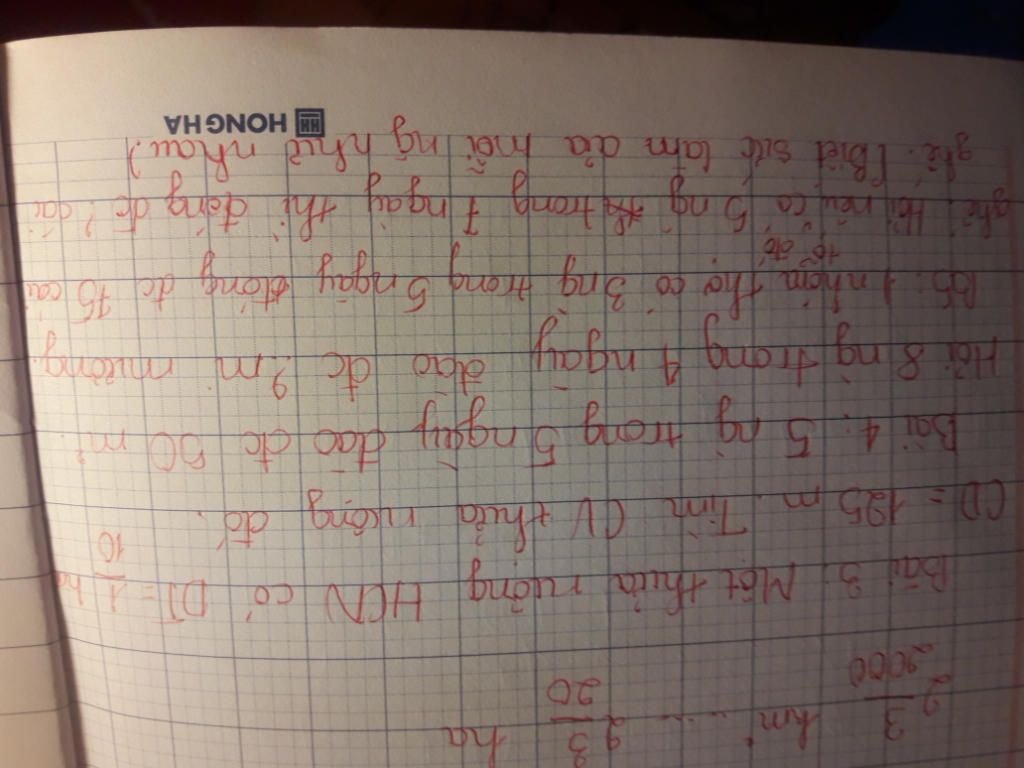 2 3/2000 km² ... 2 3/20 ha
Bài 3. Một thửa ruộng HCN có DT = 1/10 ha
CD = 125 m. Tìm CV thửa ruộng đó.
Bài 4: 5 ng trong 5 ngày đào đc 50 m.
Hỏi 8 ng trong 4 ngày đào đc ? m mương.
B5: 1 nhóm thợ có 3 ng trong 5 ngày đóng đc 75 cái
ghế. Hỏi nếu có 5 ng trong 7 ngày thì đóng đc ? cái
tổ đó
ghế. (Biết sức làm của mỗi ng như nhau.)
HONG HA